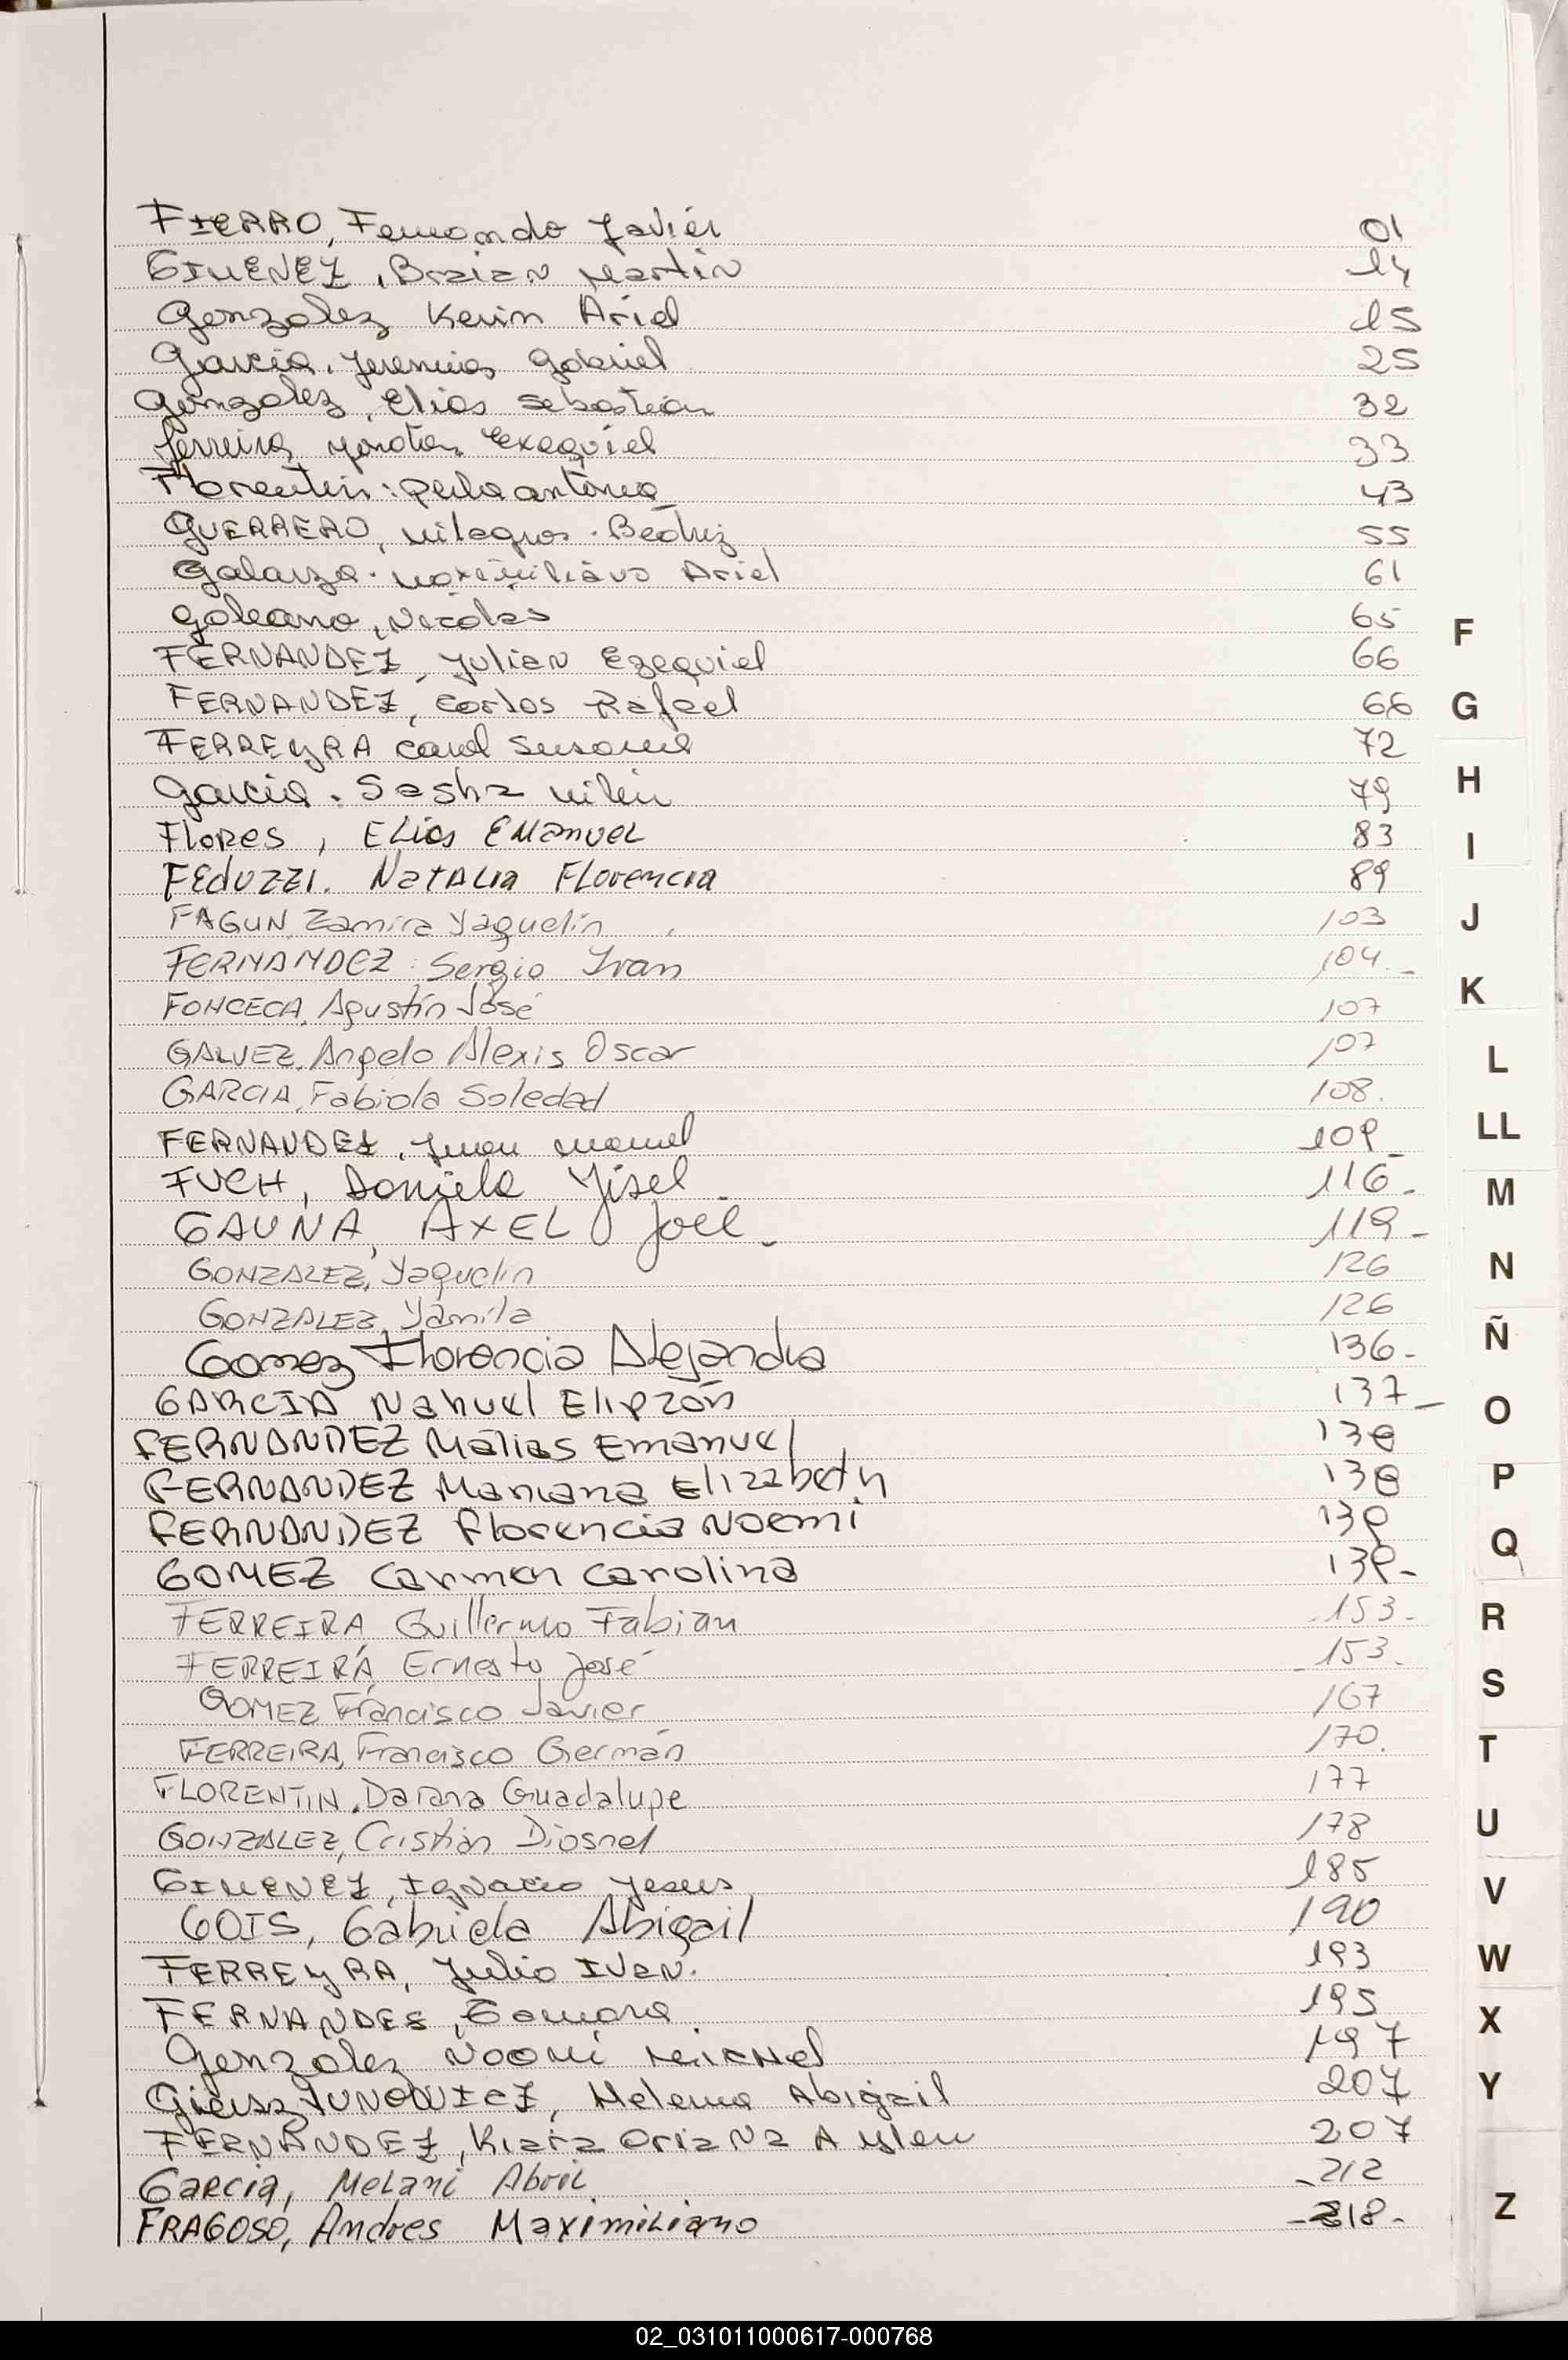 FIERRO, Fernando Javier 01
GIMENEZ, Braian Martin 14
Gonzalez Kevin Ariel 15
Garcia. Jeremias Gabriel 25
Gonzalez, Elias Sebastian 32
Ferreira Jonatan Exequiel 33
Florentin: Perla antonia 43
GUERRERO, Milagros. Beatriz 55
Galarza. Maximiliano Ariel 61
Galeano, Nicolas 65
FERNANDEZ, Julian Ezequiel 66
FERNANDEZ, Carlos Rafael 66
FERREYRA Carol Susana 72
Garcia. Sasha Milen 79
Flores, Elias EManuel 83
FEduzzi. NatALia FLorencia 89
FAGUN, Zamira Yaquelin 103
FERNANDEZ: Sergio Ivan 104.-
FONCECA, Agustín José 107
GALVEZ, Angelo Alexis Oscar 107
GARCIA, Fabiola Soledad 108.
FERNANDEZ, Juan Manuel 109
FUCH, Daniela Yisel. 116.
GAUNA, AXEL Joel.- 119-
GONZALEZ, Yaquelin 126
GONZALEZ, Yamila 126
Gomez Florencia Alejandra 136-
GARCIA Nahuel Elipzón 137-
FERNANDEZ Matias Emanuel 138
FERNANDEZ Mariana Elizabeth 138
FERNANDEZ Florencia Noemi 139
GOMEZ Carmen Carolina 139-
FERREIRA, Guillermo Fabian 153-
FERREIRA, Ernesto José 153.
GOMEZ Francisco Javier 167
FERREIRA, Francisco Germán 170.
FLORENTIN, Daiana Guadalupe 177
GONZALEZ, Cristian Diosnel 178
GIMENEZ, Ignacio Jesus 185
GOIS, Gabriela Abigail 190
FERREYRA, Julio Ivan. 193
FERNANDES, Tamara 195
Gonzalez Noomi 197
GierszTUNOWICZ, Helena Abigail 207
FERNANDEZ, Kiara Oriana Aylen 207
Garcia, MeLani Abril 212
FRAGOSO, Andres MaximiLiano 218-
F
G
H
I
J
K
L
LL
M
N
Ñ
O
P
Q
R
S
T
U
V
W
X
Y
Z
02_031011000617-000768